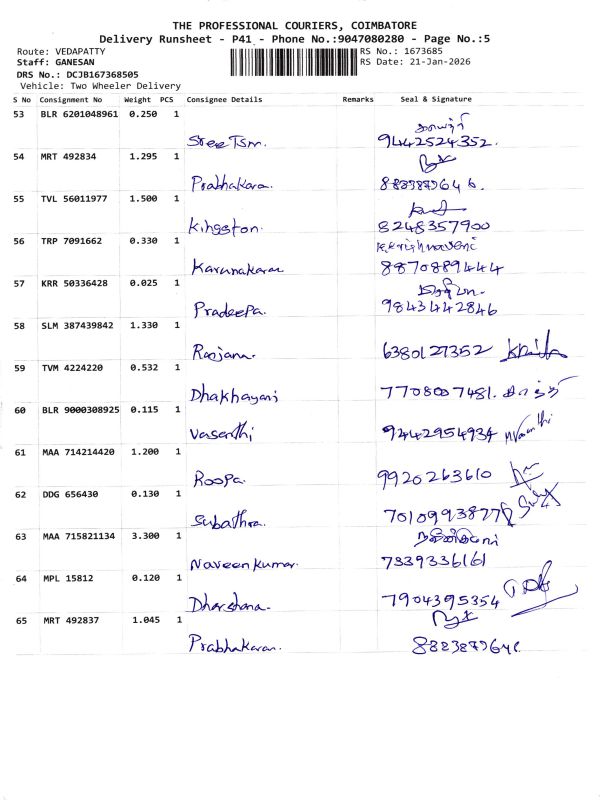 THE PROFESSIONAL COURIERS, COIMBATORE
Delivery Runsheet - P41 - Phone No.:9047080280 - Page No.:5
Route: VEDAPATTY RS No.: 1673685
Staff: GANESAN RS Date: 21-Jan-2026
DRS No.: DCJB167368505
Vehicle: Two Wheeler Delivery
S No Consignment No Weight PCS Consignee Details Remarks Seal & Signature
53 BLR 6201048961 0.250 1
Sree Tsm. 9442524352.
54 MRT 492834 1.295 1
Prabhakara. 8883879646.
55 TVL 56011977 1.500 1
Kingston. 8248357900
56 TRP 7091662 0.330 1 K.Krishnaveni
Karunakaran 8870889444
57 KRR 50336428 0.025 1
Pradeepa. 9843442846
58 SLM 387439842 1.330 1
Ranjana. 6380127352
59 TVM 4224220 0.532 1
Dhakhayani 7708007481.
60 BLR 9000308925 0.115 1
Vasanthi 9442954934
61 MAA 714214420 1.200 1
Roopa. 9920263610
62 DDG 656430 0.130 1
Subathra. 7010993877
63 MAA 715821134 3.300 1
Naveen kumar. 7339336161
64 MPL 15812 0.120 1
Dharshana. 7904395354
65 MRT 492837 1.045 1
Prabhakaran.